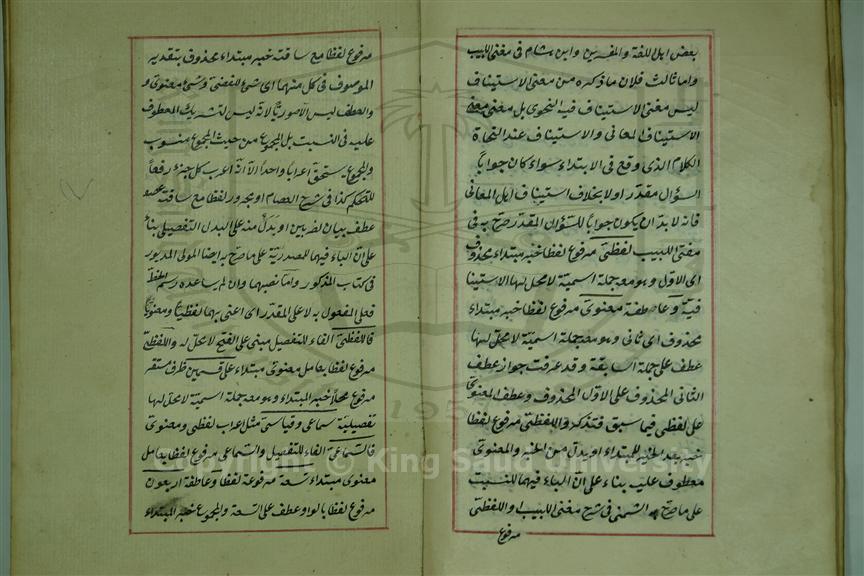 بعض اهل اللغة والمفسرين وابن هشام فى مغنى اللبيب
واما ثالث فلان ما ذكره من معنى الاستيناف
ليس معنى الاستيناف فيه النحوى بل معنى معنى
الاستيناف المعانى والاستيناف عند النحاة
الكلام الذى وقع فى الابتداء سواء كان جوابا
لسؤال مقدر اولا بخلاف استيناف اهل المعانى
فانه لا بد ان يكون جوابا للسؤال المقدر صرح به فى
مغنى اللبيب لفظى مرفوع لفظا خبر مبتداء محذوف
اى الاول وهو معه جملة اسمية لا محل لها الاستينا
فية وعاطفة معنوى مرفوع لفظا خبر مبتداء
محذوف اى ثانى وهو معه جملة اسمية لا محل لها
عطف على جملة السابقة وقد عرفت جواز عطف
الثانى المحذوف على الاول المحذوف وعطف المعنوى
على لفظى فيما سبق فتذكر واللفظى مرفوع لفظا
خبر بعد الخبر للمبتداء او بدل من الخبر والمعنوى
معطوف عليه بناء على ان الياء فيهما للنسبت
على ما صرح الشمنى فى شرح مغنى اللبيب واللفظى
مرفوع
مرفوع لفظا مع ساقته خبر مبتداء محذوف بتقدير
الموصوف فى كل منهما اى شئ لفظى وشئ معنوى و
والعطف ليس الا صوريا لانه ليس لتشريك المعطوف
عليه فى النسبت بل المجموع من حيث المجموع منسوب
والمجموع يستحق اعرابا واحدا الا انه اعرب كل جزء رفعا
للتحكم كذا فى شرح العصام او مجرور لفظا مع ساقته
عطف بيان لضربين او بدل منه على البدل التفصيلى بناء
على ان الياء فيهما للمصدرية على ما صرح به ايضا المولى المذبور
فى كتاب المذكور واما نصبهما وان لم يساعده رسم الخط
فعلى المفعول به لاعلى المقدر اى اعنى بهما لفظيا ومعنويا
فاللفظى الفاء للتفصيل مبنى على الفتح لا محل له واللفظى
مرفوع لفظا بعامل معنوى مبتداء على قسمين ظرف مستقر
مرفوع محلا خبر المبتداء وهو معه جملة اسمية لا محل لها
تفصيلية سماعى وقياسى مثل اعراب لفظى ومعنوى
فالسماعى الفاء للتفصيل والسماعى مرفوع لفظا بعامل
معنوى مبتداء تسعة مرفوعة لفظا وعاطفة اربعون
مرفوع لفظا بالواو عطف على التسعة والمجموع خبر المبتداء
Copyright © King Saud University